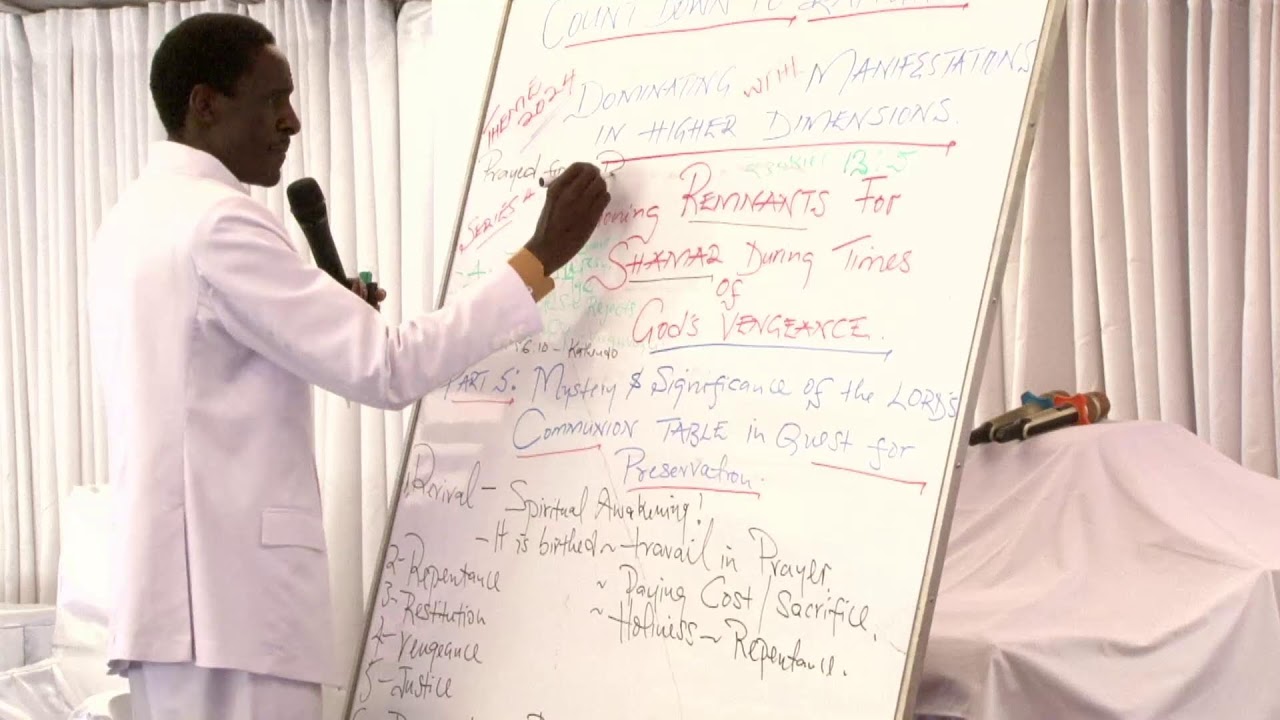 COUNT DOWN TO
THEME 2024
DOMINATING WITH MANIFESTATIONS
IN HIGHER DIMENSIONS.
Prayed for
13:5
SERIES 4
REMNANTS FOR
~SHAMAR During Times
of
GOD'S VENGEANCE.
PART 5: Mystery & Significance of the LORD'S
COMMUNION TABLE in Quest for
Preservation.
1. Revival - Spiritual Awakening!
- It is birthed ~ travail in Prayer.
~ Paying Cost / Sacrifice.
~ Holiness ~ Repentance.
2- Repentance
3- Restitution
4- Vengeance
5- Justice